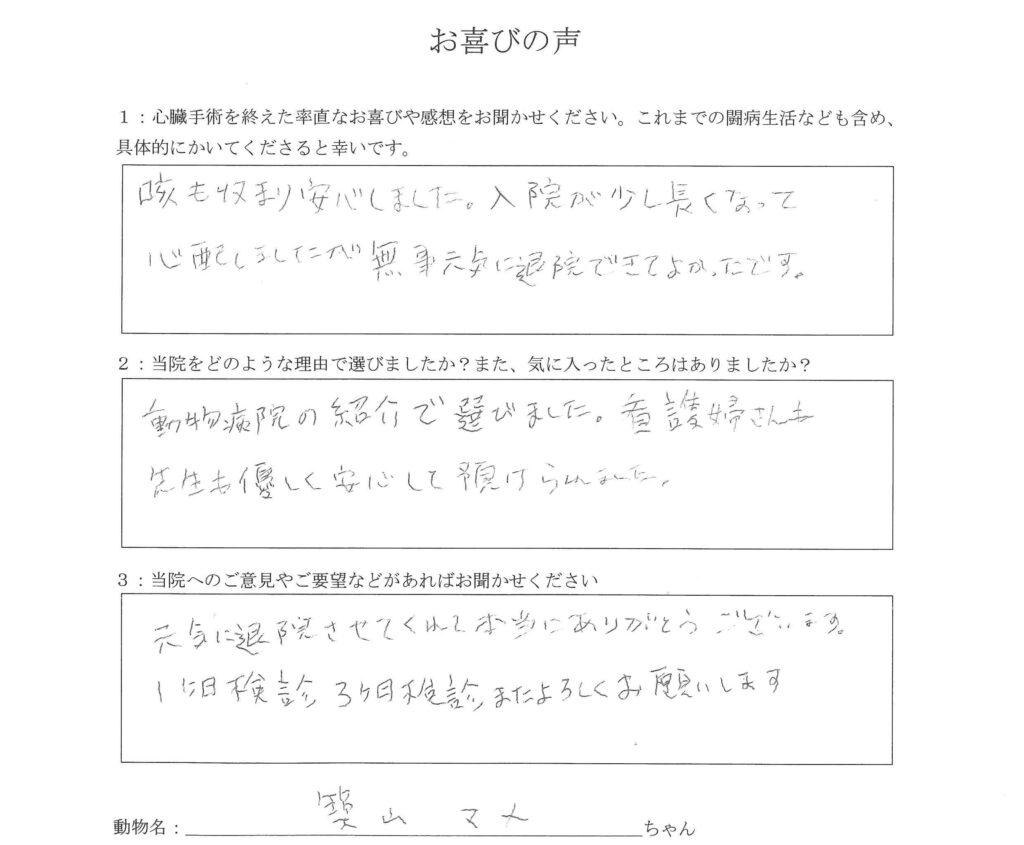 お喜びの声
1：心臓手術を終えた率直なお喜びや感想をお聞かせください。これまでの闘病生活なども含め、
具体的にかいてくださると幸いです。
咳も収まり安心しました。入院が少し長くなって
心配しましたが無事元気に退院できてよかったです。
2：当院をどのような理由で選びましたか？また、気に入ったところはありましたか？
動物病院の紹介で選びました。看護婦さんも
先生も優しく安心して預けられました。
3：当院へのご意見やご要望などがあればお聞かせください
元気に退院させてくれて本当にありがとうございます。
1ヶ月検診3ヶ月検診またよろしくお願いします
動物名：山 マメ ちゃん